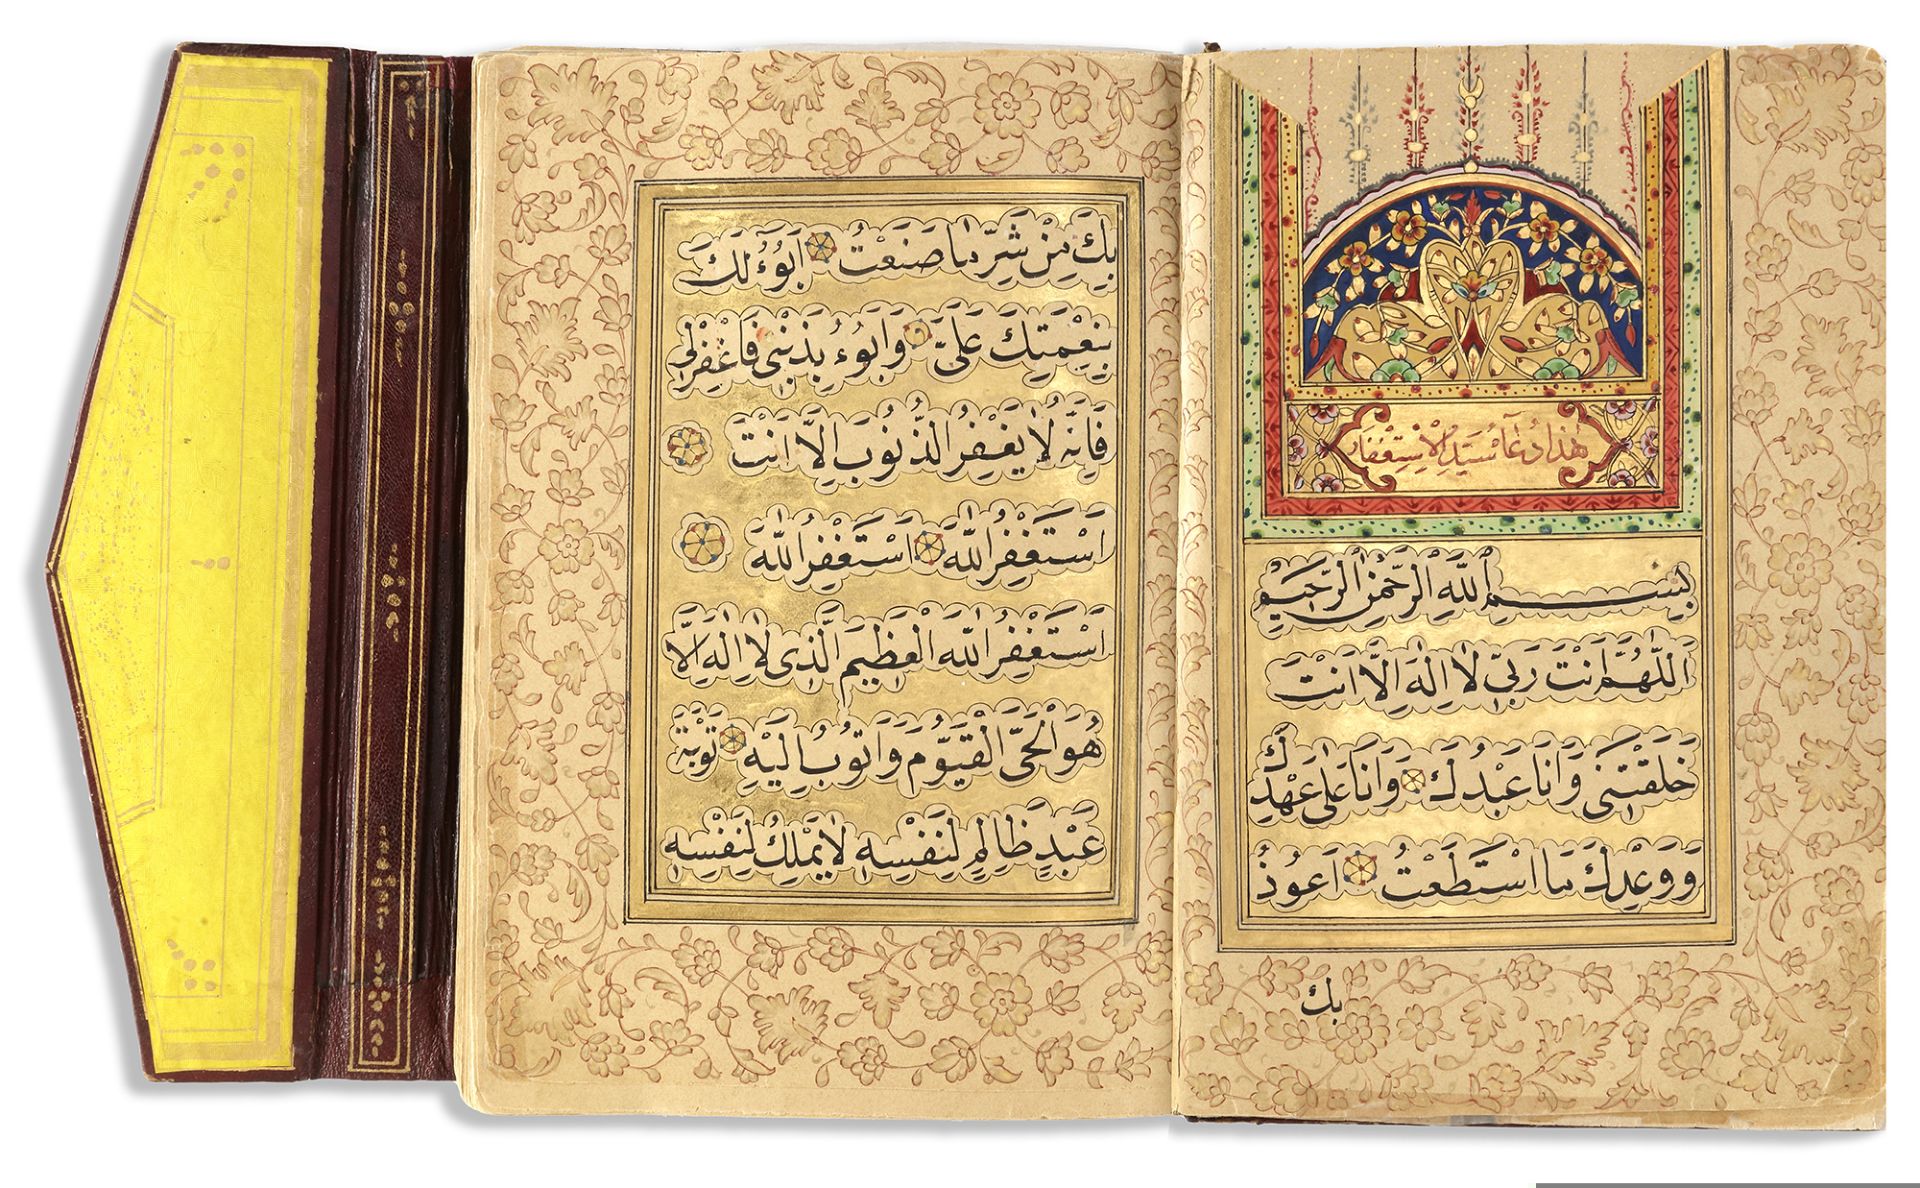 هٰذَا دُعَاءُ سَيِّدُ الْاِسْتِغْفَارِ
بِسْمِ اللّٰهِ الرَّحْمٰنِ الرَّحِيمِ
اَللّٰهُمَّ اَنْتَ رَبِّي لَا اِلٰهَ اِلَّا اَنْتَ
خَلَقْتَنِي وَاَنَا عَبْدُكَ وَاَنَا عَلٰى عَهْدِكَ
وَوَعْدِكَ مَا اسْتَطَعْتُ اَعُوذُ
بك
بِكَ مِنْ شَرِّ مَا صَنَعْتُ اَبُوءُ لَكَ
بِنِعْمَتِكَ عَلَيَّ وَاَبُوءُ بِذَنْبِي فَاغْفِرْلِي
فَاِنَّهُ لَا يَغْفِرُ الذُّنُوبَ اِلَّا اَنْتَ
اَسْتَغْفِرُ اللّٰهَ اَسْتَغْفِرُ اللّٰهَ
اَسْتَغْفِرُ اللّٰهَ الْعَظِيمَ الَّذِي لَا اِلٰهَ اِلَّا
هُوَ الْحَيَّ الْقَيُّومَ وَاَتُوبُ اِلَيْهِ تَوْبَةَ
عَبْدٍ ظَالِمٍ لِنَفْسِهِ لَا يَمْلِكُ لِنَفْسِهِ